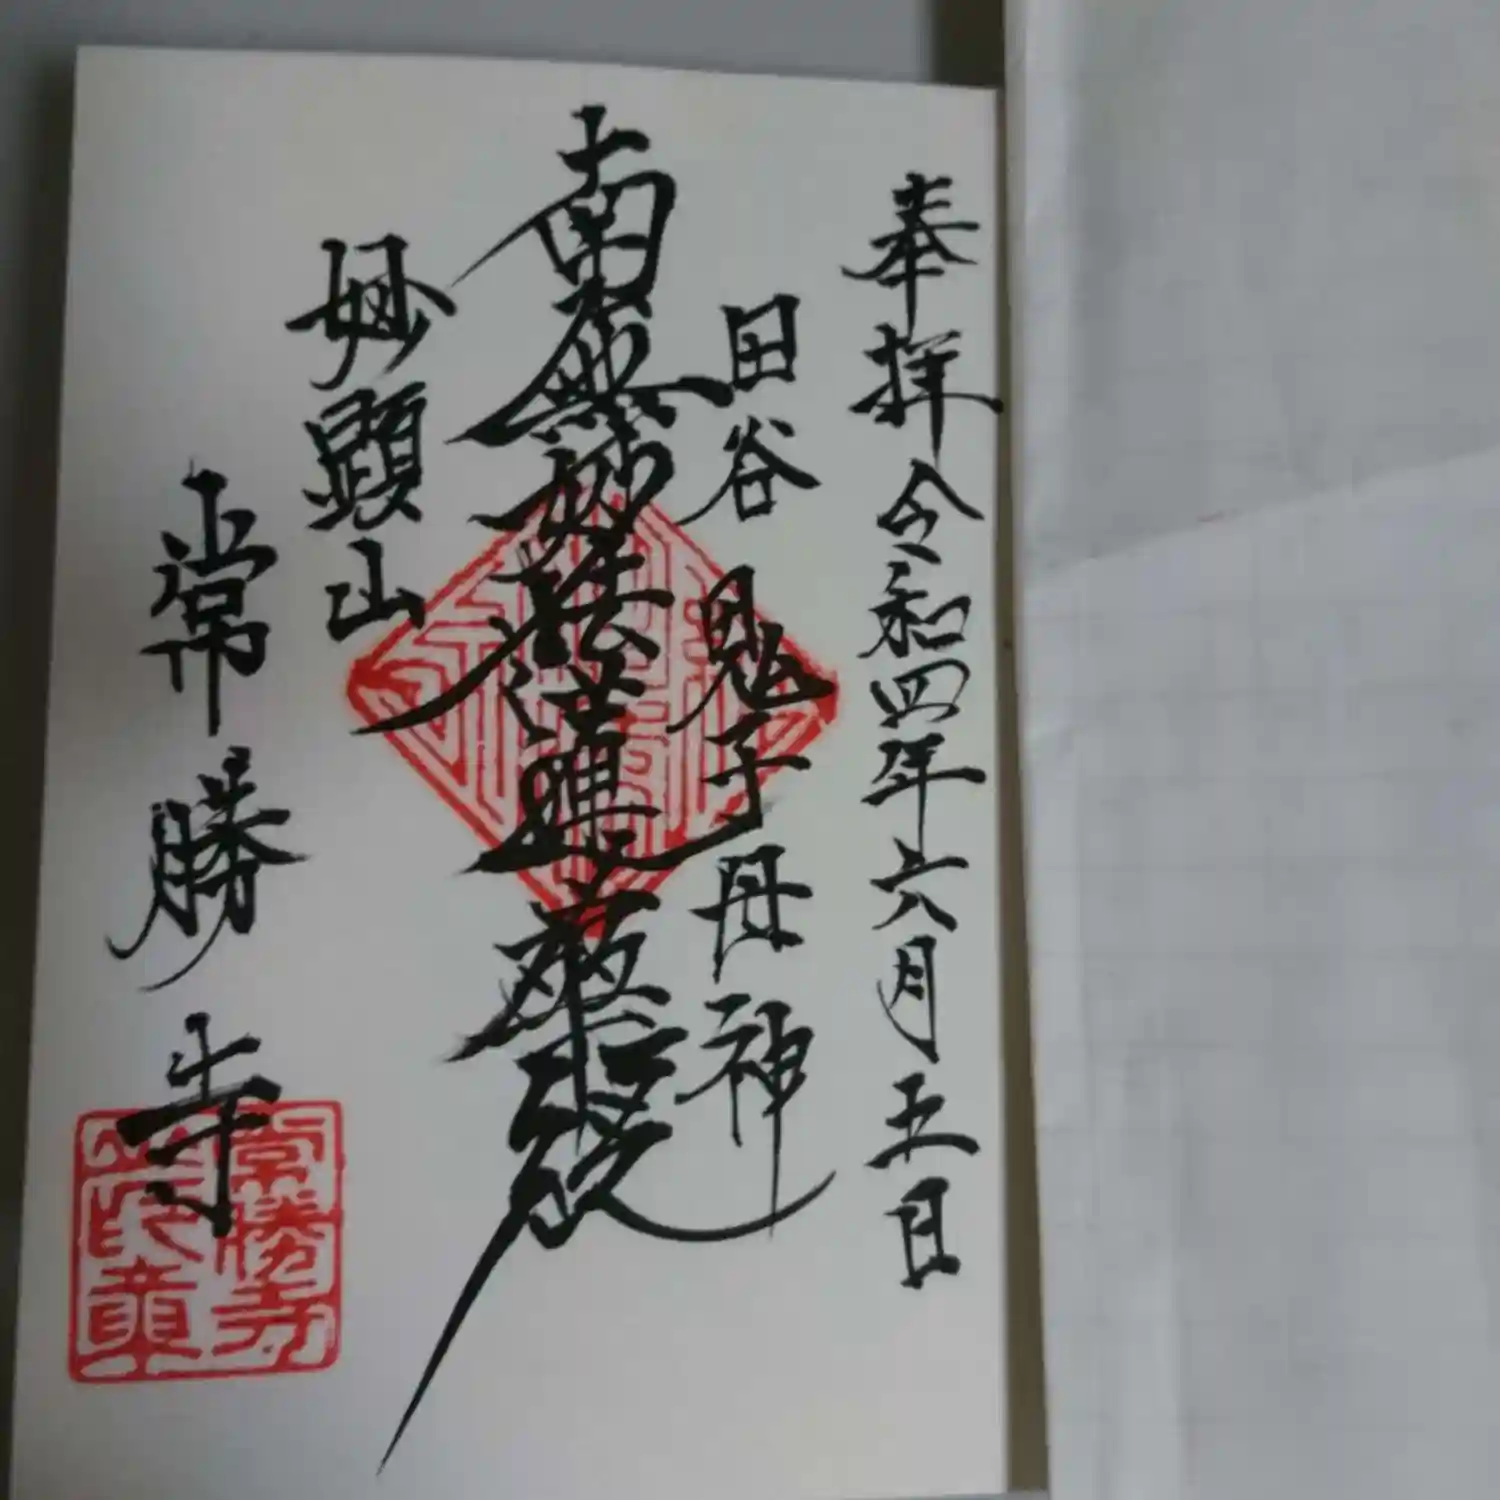 奉拝 令和四年六月五日
田谷 鬼子母神
南無妙法蓮華経
妙顕山
常勝寺
常勝寺